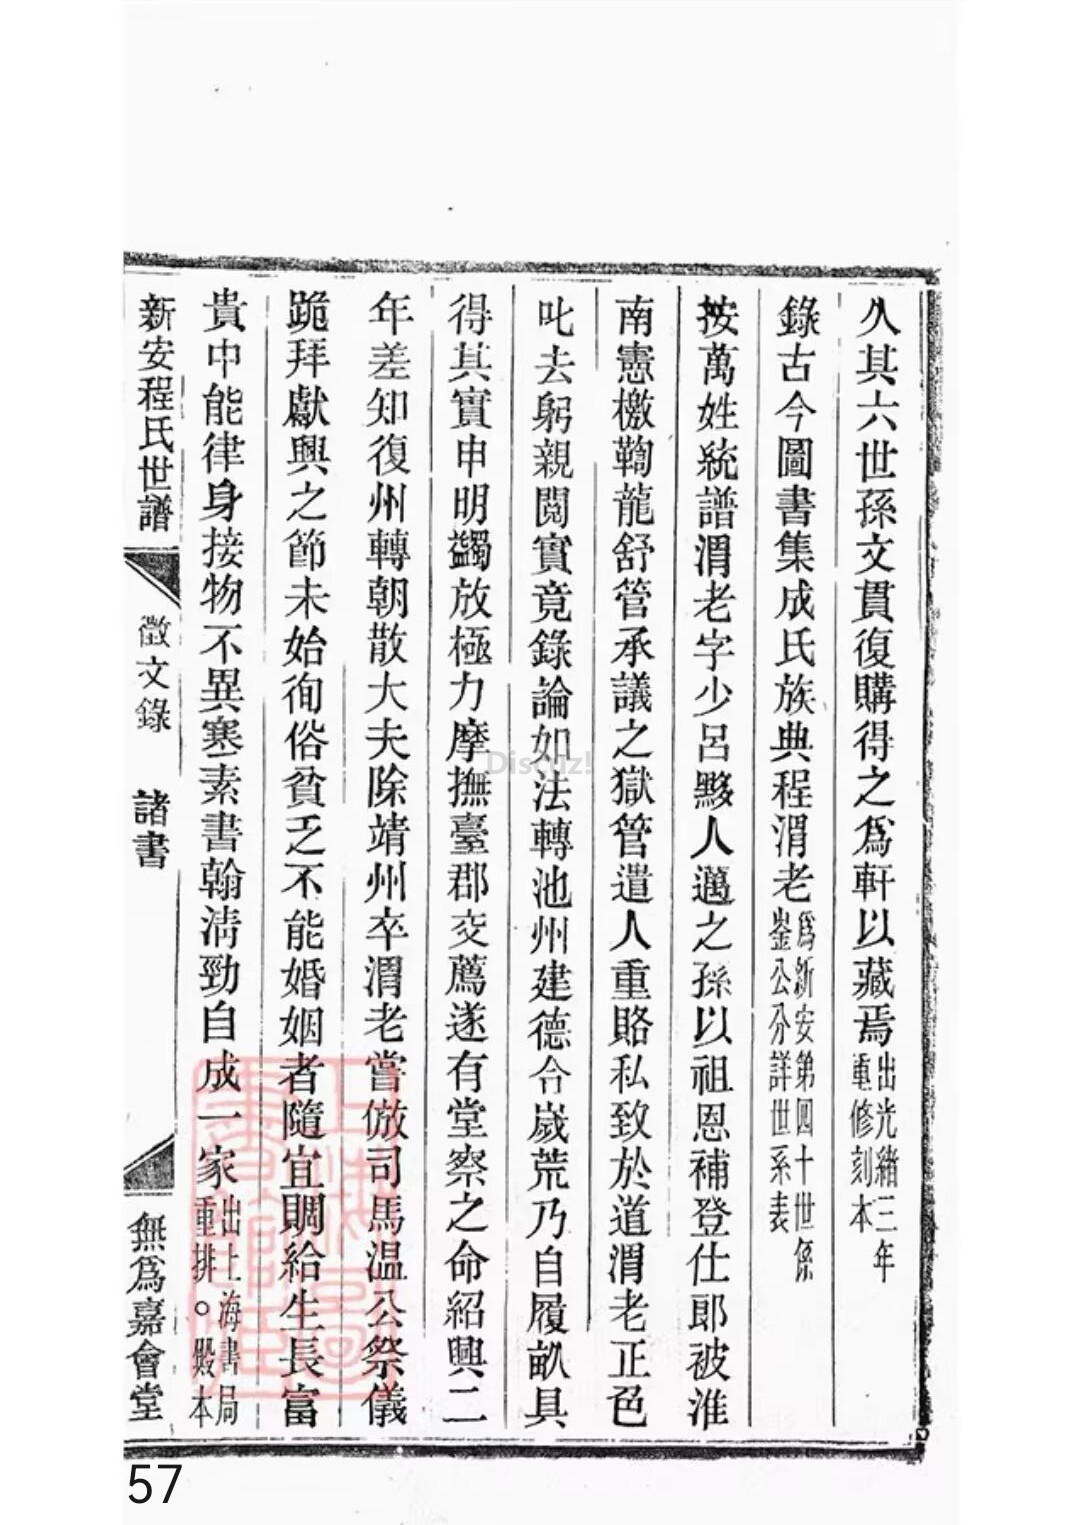 久其六世孫文貫復購得之爲軒以藏焉出光緒三年重修刻本
錄古今圖書集成氏族典程渭老爲新安第四十世係崟公分詳世系表
按萬姓統譜渭老字少呂黟人邁之孫以祖恩補登仕郎被淮
南憲檄鞫龍舒管承議之獄管遣人重賂私致於道渭老正色
叱去躬親閱實竟錄論如法轉池州建德令嵗荒乃自履畝具
得其實申明蠲放極力摩撫臺郡交薦遂有堂察之命紹興二
年差知復州轉朝散大夫除靖州卒渭老嘗倣司馬温公祭儀
跪拜獻興之節未始徇俗貧乏不能婚姻者隨宜賙給生長富
貴中能律身接物不異寒素書翰淸勁自成一家出上海書局重排。殿本
新安程氏世譜 徵文錄 諸書 無爲嘉會堂
Discuz!
57